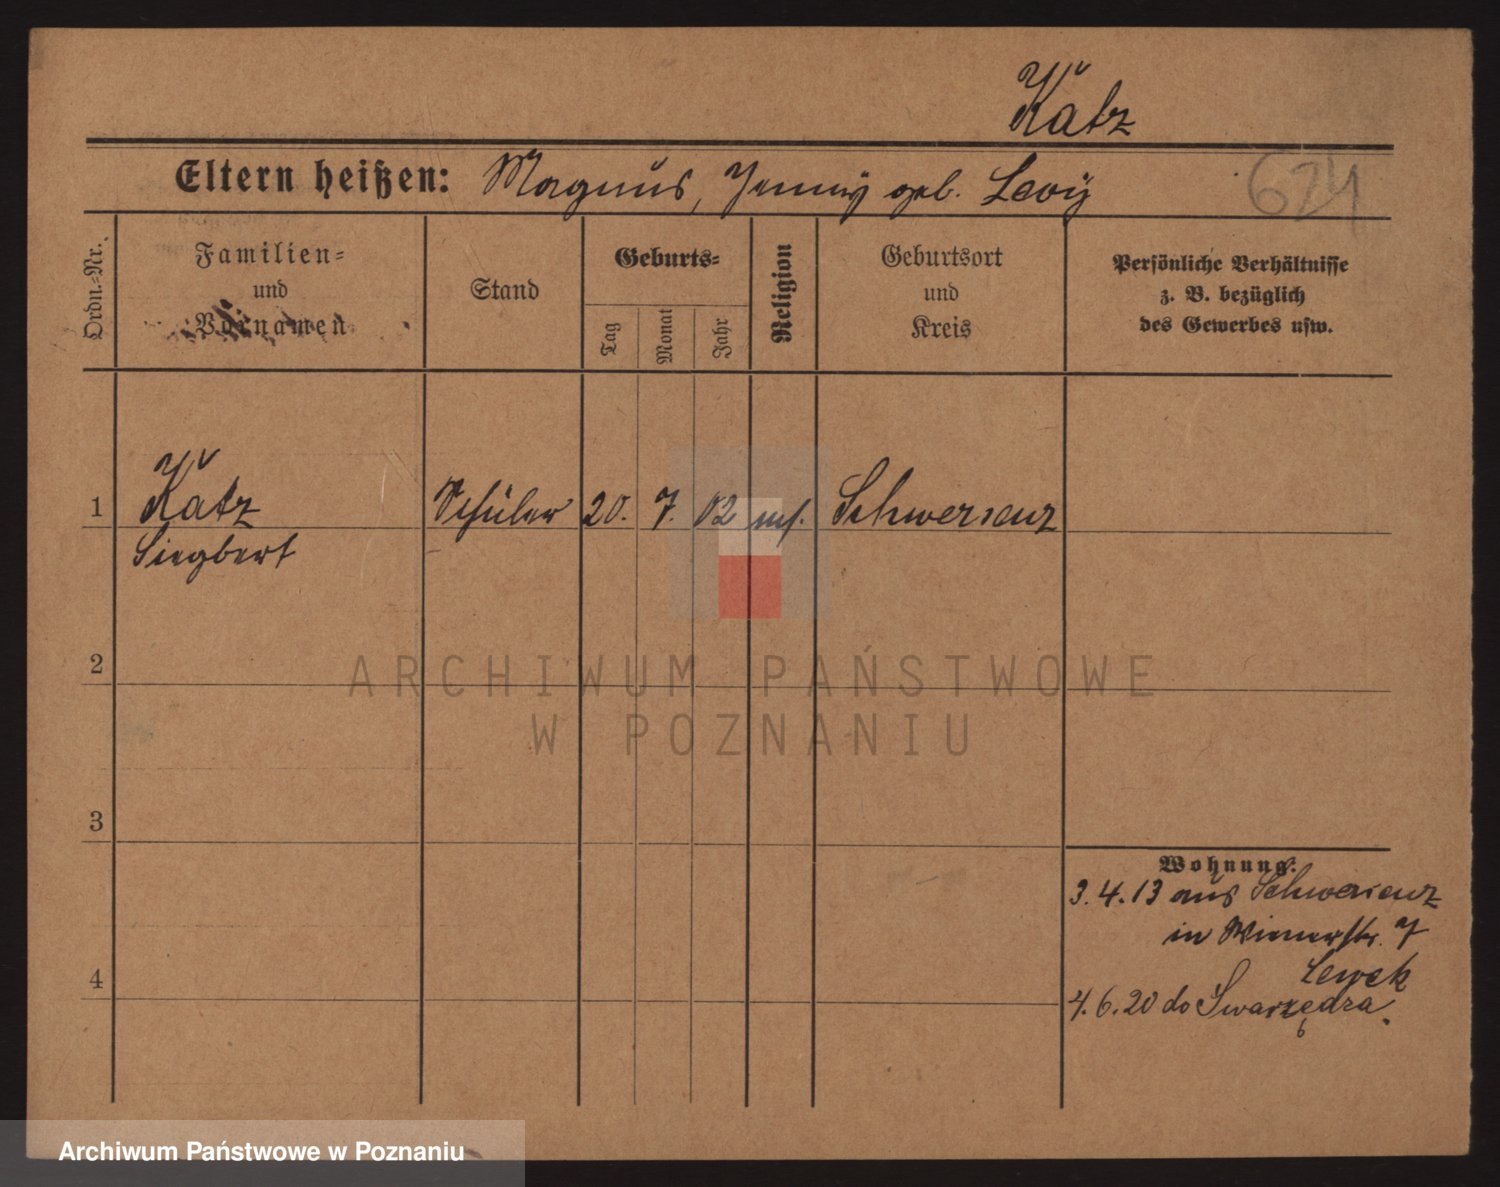 Katz
Eltern heißen: Magnus, Jenny geb. Levy
624
Ordn.-Nr.
Familien- und Vornamen
Stand
Geburts-
Tag
Monat
Jahr
Religion
Geburtsort und Kreis
Persönliche Verhältnisse
z. B. bezüglich
des Gewerbes usw.
1 Katz Schüler 20. 7. 02 ms. Schwersenz
Siegbert
2
ARCHIWUM PAŃSTWOWE
W POZNANIU
3
Wohnung:
3.4.13 aus Schwersenz
in Wienerstr. 7
Lewek
4
4.6.20 do Swarzędza.
Archiwum Państwowe w Poznaniu